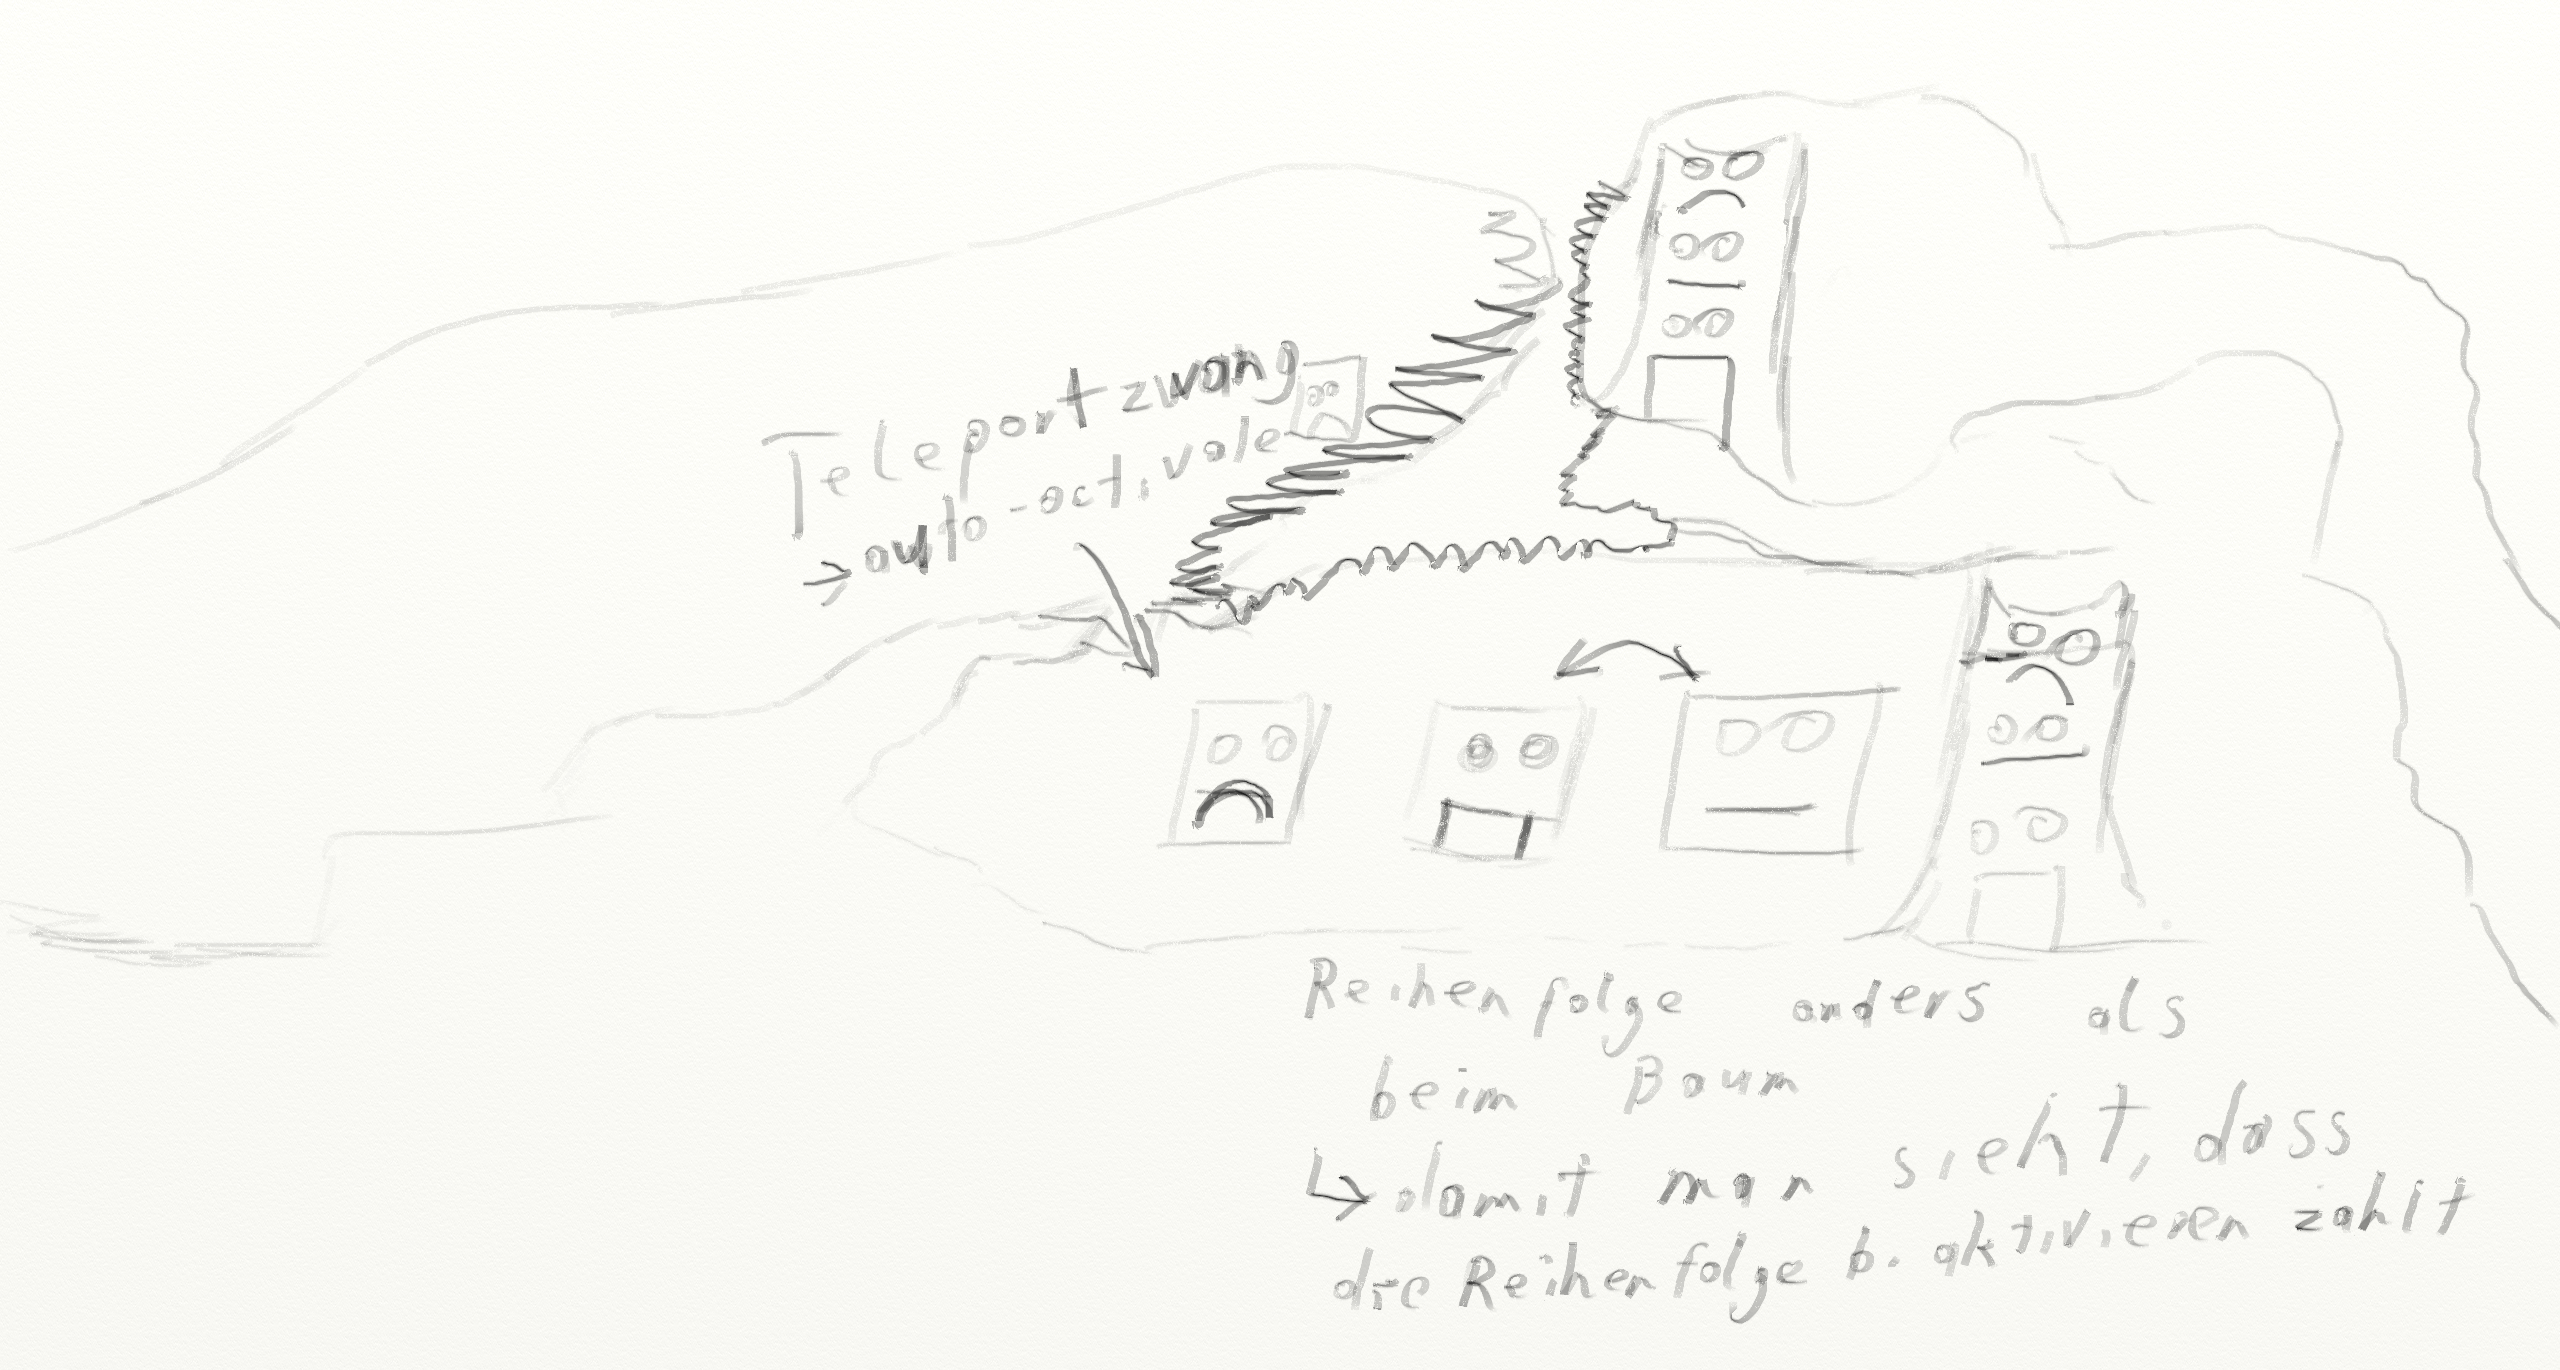 Teleportzwang
→ auto-activate
Reihenfolge anders als
beim Baum
↳ damit man sieht, dass
die Reihenfolge b. aktivieren zählt